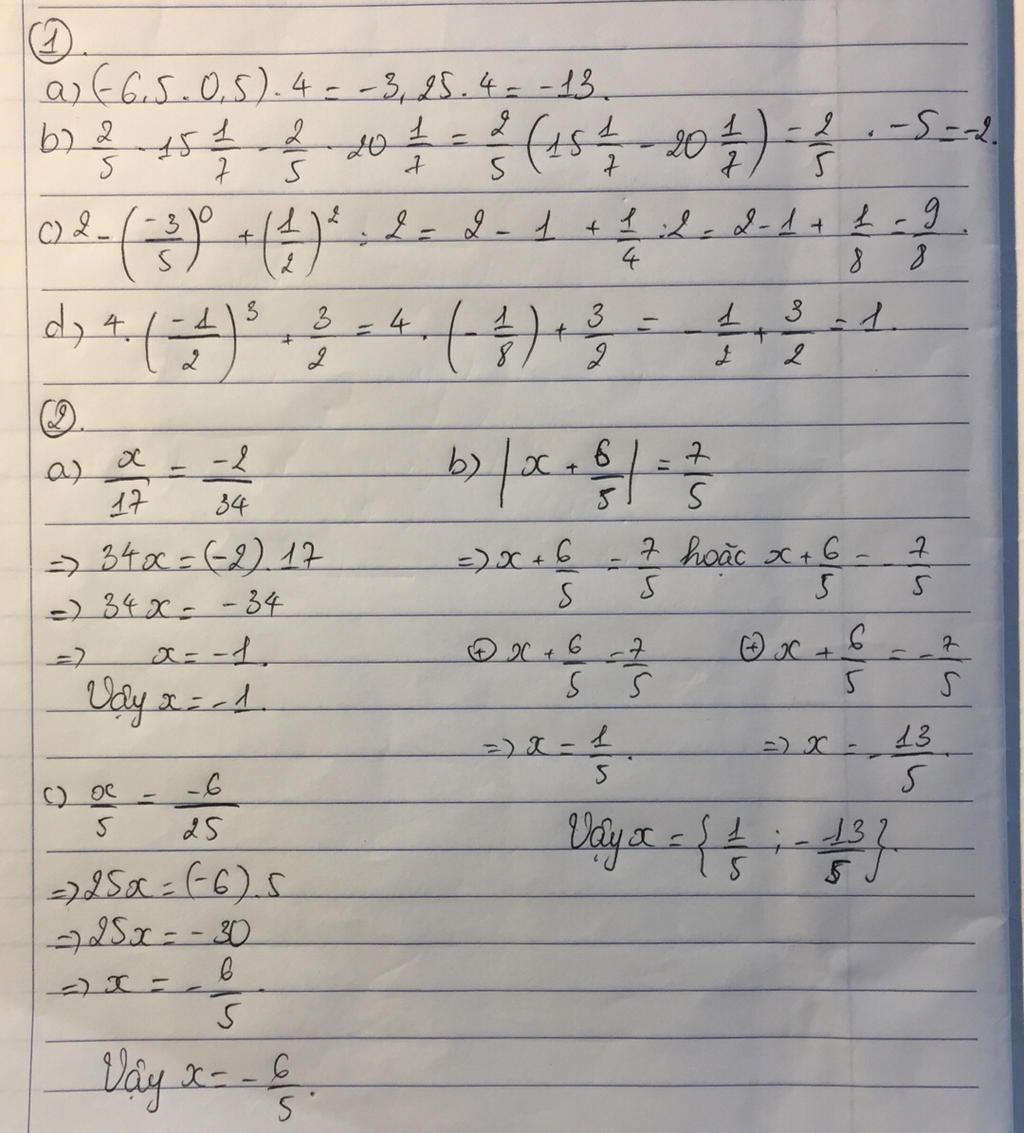 ①.
a) (-6,5 . 0,5) . 4 = -3,25 . 4 = -13.
b) 2/5 . 15 1/7 - 2/5 . 20 1/7 = 2/5 (15 1/7 - 20 1/7) = 2/5 . -5 = -2.
c) 2 - (-3/5)^0 + (1/2)^2 : 2 = 2 - 1 + 1/4 : 2 = 2 - 1 + 1/8 = 9/8.
d) 4. (-1/2)^3 + 3/2 = 4 . (-1/8) + 3/2 = -1/2 + 3/2 = 1.
②.
a) x/17 = -2/34
=> 34x = (-2) . 17
=> 34x = -34
=> x = -1.
Vậy x = -1.
b) |x + 6/5| = 7/5
=> x + 6/5 = 7/5 hoặc x + 6/5 = -7/5
⊕ x + 6/5 = 7/5 ⊕ x + 6/5 = -7/5
=> x = 1/5. => x = -13/5.
Vậy x = {1/5 ; -13/5}.
c) x/5 = -6/25
=> 25x = (-6) . 5
=> 25x = -30
=> x = -6/5.
Vậy x = -6/5.